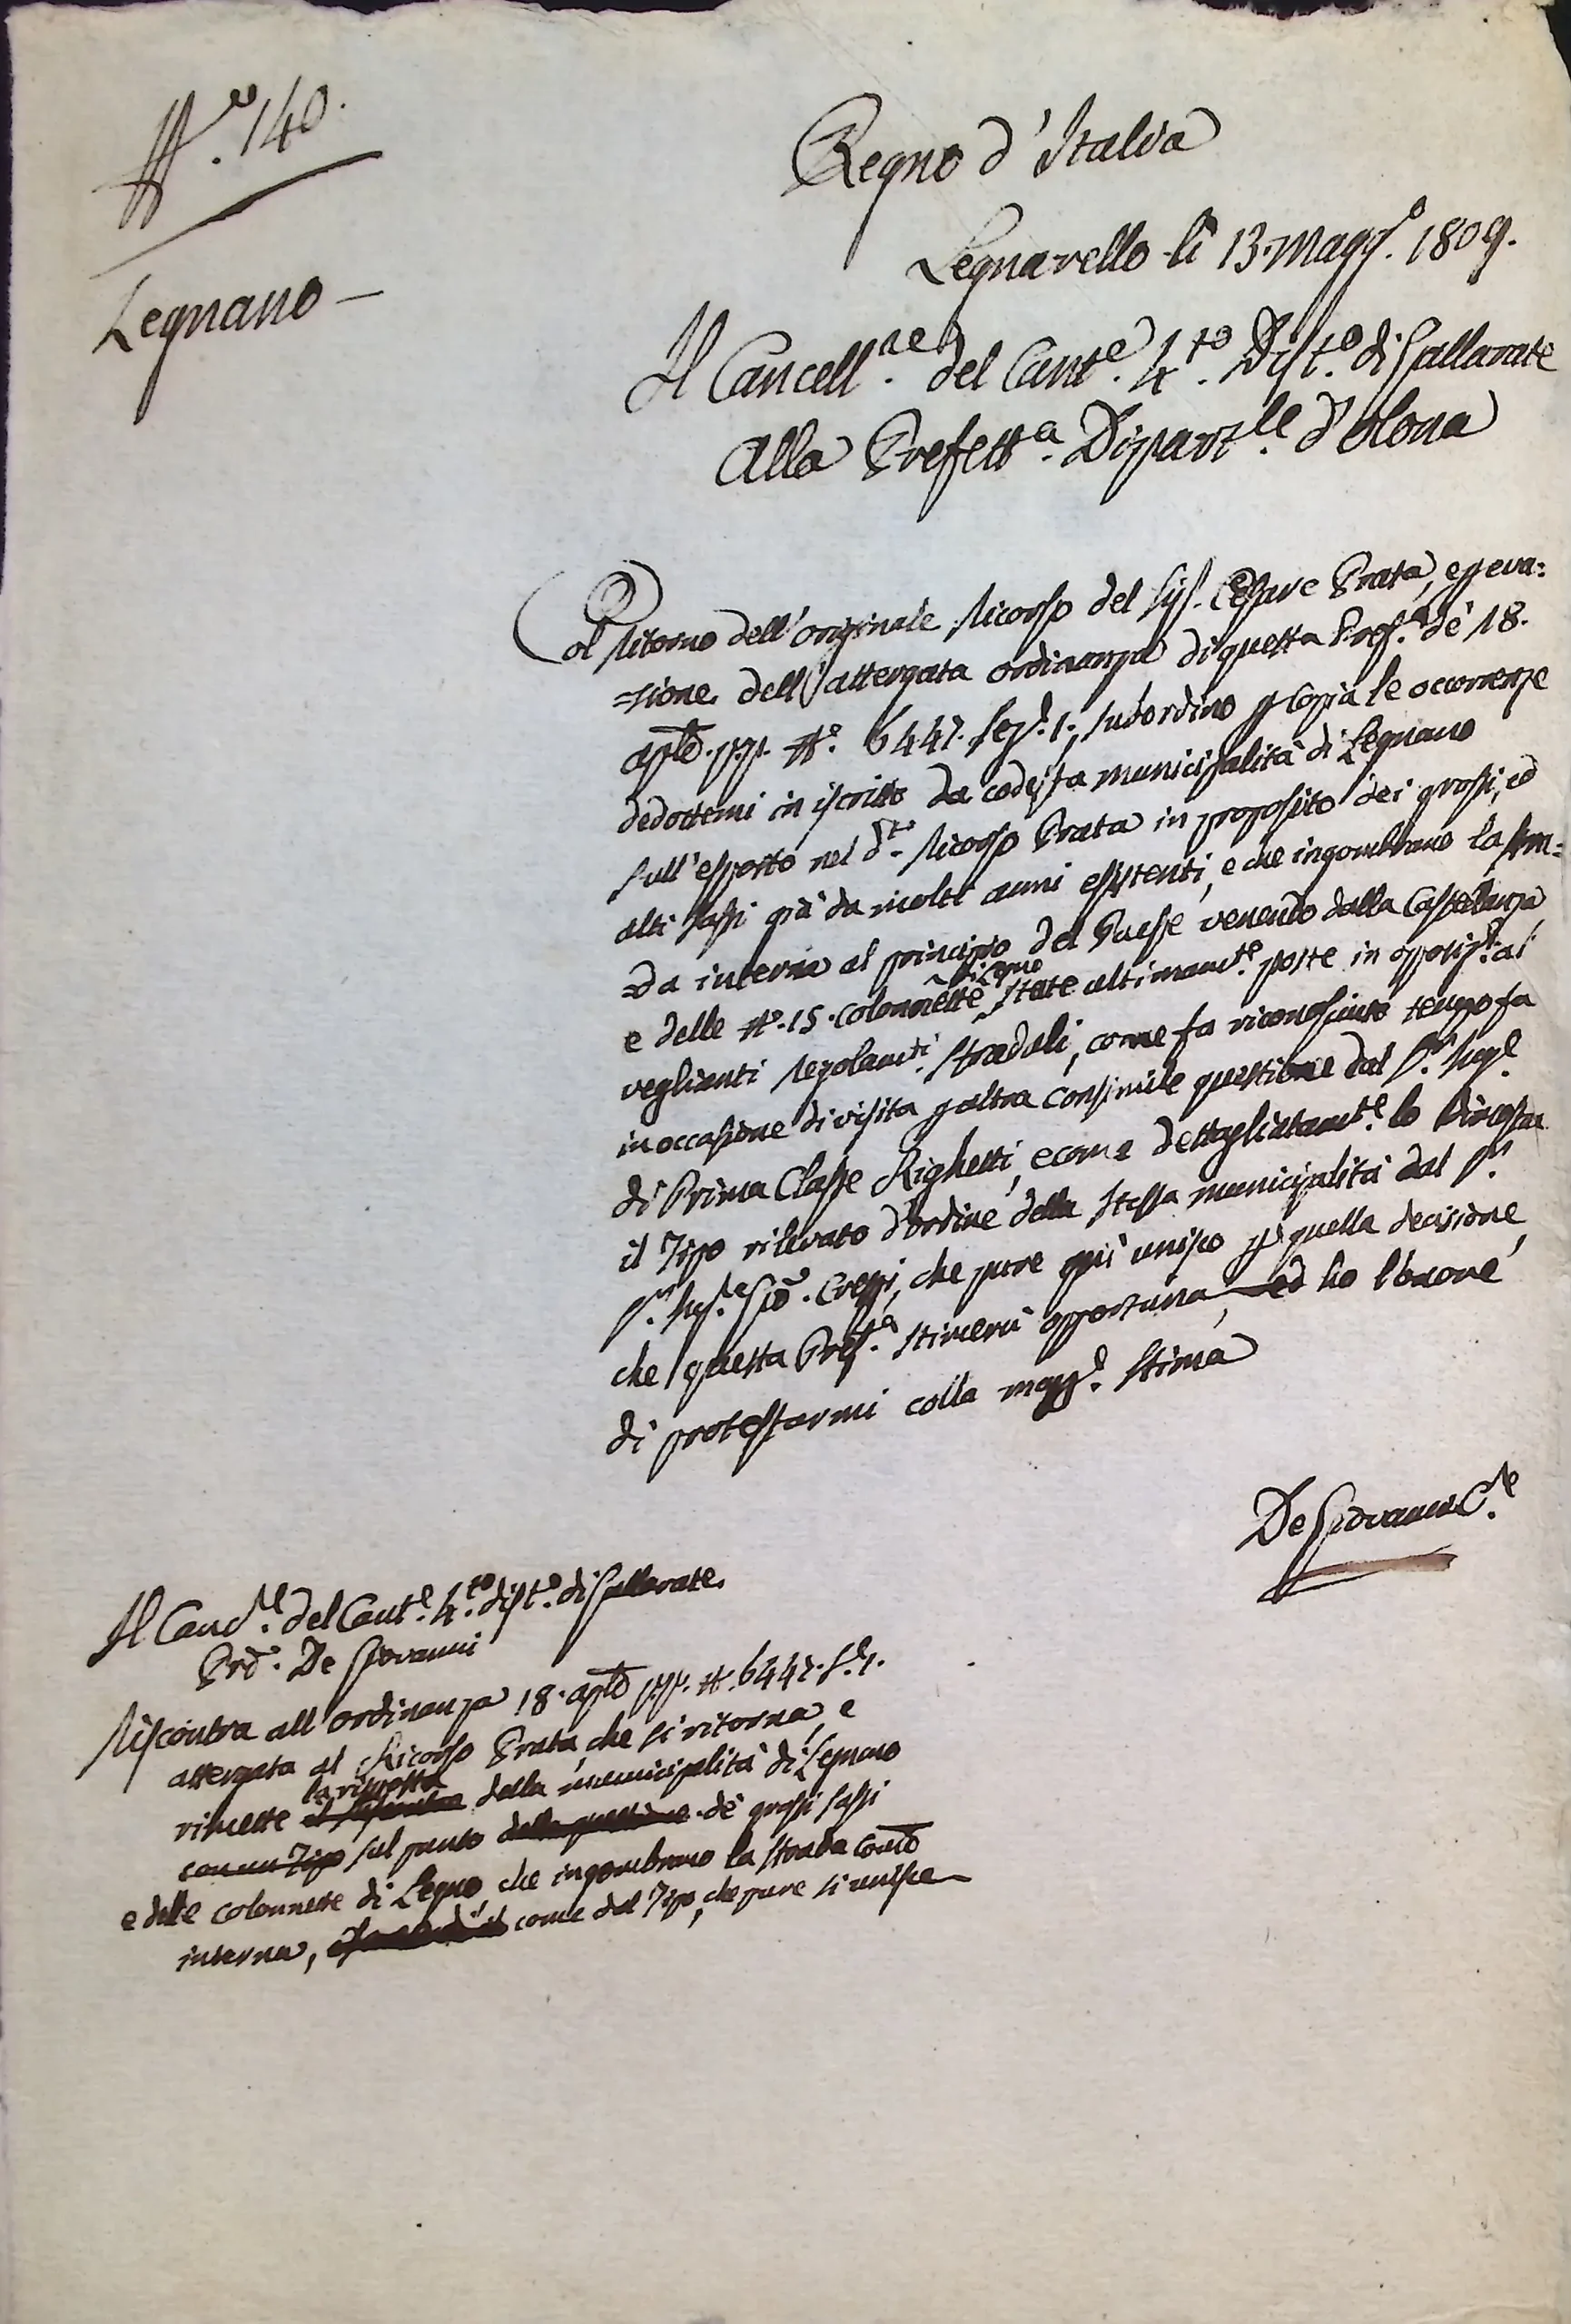 N.ro 140.
Legnano
Regno d'Italia
Legnarello li 13. Magg.o 1809.
Il Cancell.re del Cant.e 4.to Dist.o di Gallarate
Alla Prefett.a Dipart.le d'Olona
Col ritorno dell'originale Ricorso del Sig.r Cesare Prata, ed eva=
=sione dell'attergata ordinanza di questa Pref.a de' 18.
aple. p.p. N.o 6447. Sez.e 1.a, subordino p copia le occorrenze
dedottemi in iscritto da codesta municipalità di Legnano
sull'esposto nel d.to Ricorso Prata in proposito dei grossi, ed
alti sassi già da molti anni esistenti, e che ingombrano la stra=
=da interna al principio del Paese venendo dalla Castellanza
e delle N.o 15. colonnette di Legno state ultimam.te poste in opposiz.e ai
veglianti regolam.ti stradali, come fu riconosciuto tempo fa
in occasione di visita p altra consimile questione dal S.r Ing.e
di Prima Classe Righetti, e come dettagliatam.te lo dimostra
il Tipo rilevato d'ordine della stessa municipalità dal S.r
Ing.e Gio. Crespi, che pure qui unisco p quella decisione,
che questa Pref.a stimerà opportuna, ed ho l'onore
di protestarmi colla magg.e stima
De Giovanni C.re
Il Canc.re del Cant.e 4.to dist.o di Gallarate
Prd.o De Giovanni
Riscontra all'ordinanza 18. aple p.p. N. 6447. S.e 1.
attergata al Ricorso Prata, che si ritorna, e
rimette la risposta della municipalità di Legnano
con un Tipo sul punto della questione de' grossi sassi
e delle colonnette di Legno, che ingombrano la strada Comle
interna, come dal Tipo, che pure si unisce